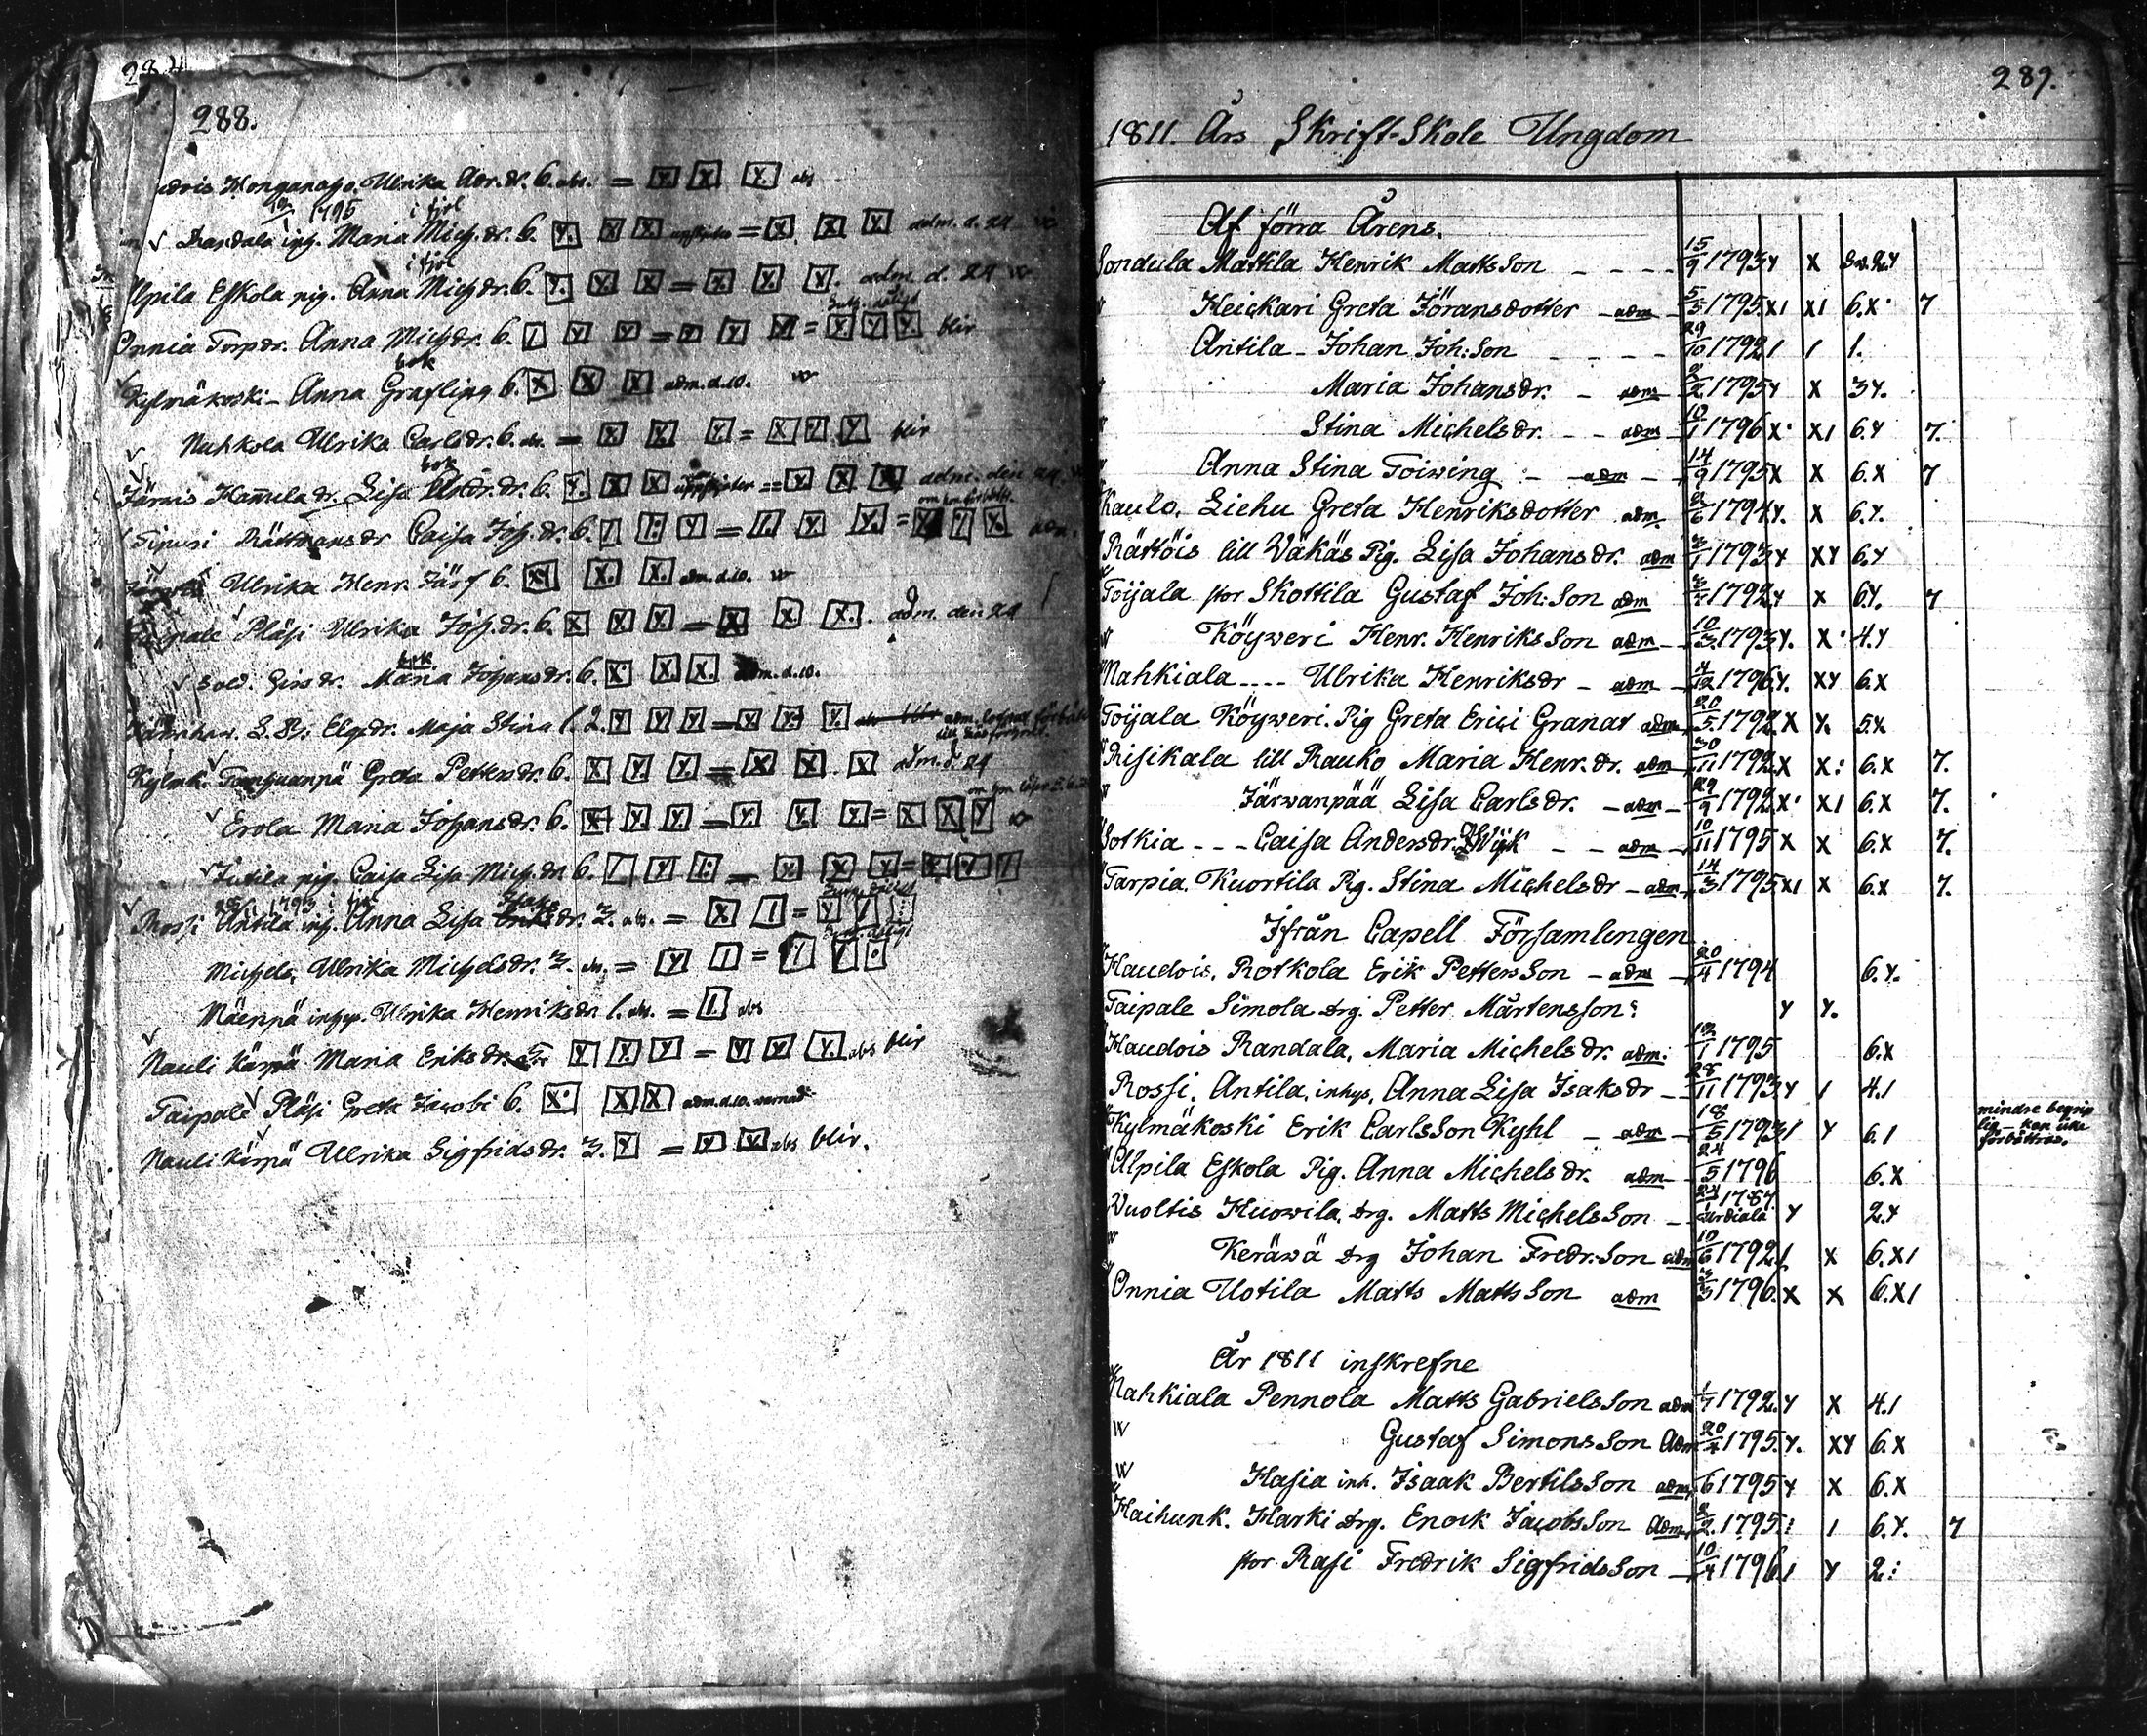 284
288.
Honganojo, Ulrika Adr.dr. 6. abs. = Y. X Y. abs
10/1 1795 i fjol
Randala inh. Maria Mich.dr. 6. Y. X X = X. X Y. adm. d. 29
i fjol
Alpila Eskola pig. Anna Mich dr. 6. Y. Y. X = X. Y. Y. adm. d. 29
Onnia Torp dr. Anna Mich dr. 6. 1 Y Y = Y Y Y = Y Y Y. blir
bok
Kylmäkoski - Anna Grafling 6. X X X adm. d. 10.
Nahkola Ulrika Carlsdr. 6. abs. = X X. Y. = X Y Y blir
bok
Järvis Hamula dr. Lisa Andr.dr. 6. Y. X X = Y X X adm. den 29
Tipuri Rättmans dr Caisa Joh.dr. 6. 1 1: Y = 1. Y. Y. = Y Y. adm.
Ulrika Henr. Järf 6. X X. X. adm. d. 10.
Taipale Pläsi Ulrika Joh.dr. 6. X Y. Y. = X X X. adm. den 29
bok
Sold. Girs dr. Maria Johansdr. 6. X. X X. adm. d. 10.
Elgdr. Maja Stina 1. 2. Y Y Y = Y Y. Y. adm.
Kylmk. Tomjuanpä Greta Pettersdr. 6. X Y. Y. = X X X adm. d. 29
Erola Maria Johansdr. 6. X Y. Y. = Y. Y. Y = X X Y
pig. Caisa Lisa Mich.dr. 6. 1 Y 1: = Y. X Y = X Y 1
28/11 1793 i fjol Isaks
Rossi Antila inh. Anna Lisa Eriks dr. 3. abs. = X 1 = Y 1
Michels, Ulrika Michelsdr. 3. abs. = Y 1 = 1 Y
Mäenpä inhys. Ulrika Henriksdr 1. abs. = 1. abs
Nauli Kärpä Maria Eriksdr. Y Y Y = Y Y Y. abs blir
Taipale Pläsi Greta Jacobi 6. X. X X adm. d. 10. varnad
Nauli Kärpä Ulrika Sigfridsdr. 3. Y = Y Y abs blir.
289.
1811. Års Skrift-Skole Ungdom
Af förra Årens.
Sondula Mattila Henrik Matts Son - - - - 15/9 1793 Y X
Heickari Greta Jöransdotter - adm - 5/5 1795. X1 X1 6.X. 7
Antila - Johan Joh: Son - - - - 29/10 1792 1 1 1.
Maria Johansdr. - adm 1795 Y X 3Y.
Stina Michelsdr. - - adm - 10/1 1796 X. X1 6.Y 7.
Anna Stina Toiwing - adm - 14/9 1795 X X 6.X 7
Kaulo. Liehu Greta Henriksdotter adm 1794 Y. X 6.Y.
Rättöis lill Wäkäs Pig. Lisa Johansdr. adm 1793 Y XY 6.Y
Toijala stor Skottila Gustaf Joh: Son adm 1792 Y X 6Y. 7
Köyweri Henr. Henriks Son adm - 10/3 1793 Y. X. 4.Y
Nahkiala - - - - Ulrika Henriksdr - adm - 4/12 1796 Y. XY 6.X
Toijala Köyweri. Pig Greta Erici Granat adm 20/5 1792 X Y. 5.X
Risikala lill Rauko Maria Henr. dr. adm 30/11 1792 X X: 6.X 7.
Järwanpää Lisa Carlsdr. - adm - 29/9 1792 X. X1 6.X 7.
Sotkia - - - Caisa Andersdr. Wijk - - adm - 10/11 1795 X X 6.X 7.
Tarpia. Kuortila Pig. Stina Michelsdr - adm - 14/3 1795 X1 X 6.X 7.
Ifrån Capell Församlingen
Haudois, Rotkola Erik Petters Son - adm - 20/4 1794 6.Y.
Taipale Simola drg. Petter Mårtensson: Y Y.
Haudois Randala, Maria Michels dr. adm: 10/1 1795 6.X
Rossi, Antila, inhys, Anna Lisa Isaksdr - 28/11 1793 Y 1 4.1
Kylmäkoski Erik Carls Son Kyhl - adm - 18/5 1793 1 Y 6.1 mindre begrip
lig - kan icke
förbättras.
Alpila Eskola Pig. Anna Michels dr. adm - 24/5 1796 6.X
Vuoltis Huowila, drg. Matts Michels Son - 1787 Urdiala Y 2.Y
Keräwä drg Johan Fredr: Son adm 10/6 1792 1. X 6.X1
Onnia Uotila Matts Matts Son adm 1796. X X 6.X1
År 1811 inskrefne
Nahkiala Pennola Matts Gabriels Son adm 1792. Y X 4.1
W Gustaf Simons Son Adm 1795. Y. XY 6.X
W Hasia inh. Isaak Bertils Son adm 1795 Y X 6.X
Haihunk. Harki drg. Enock Jacobs Son Adm 2/2 1795: 1 6.Y. 7
stor Rasi Fredrik Sigfrids Son - 10/4 1796 1 Y 2: